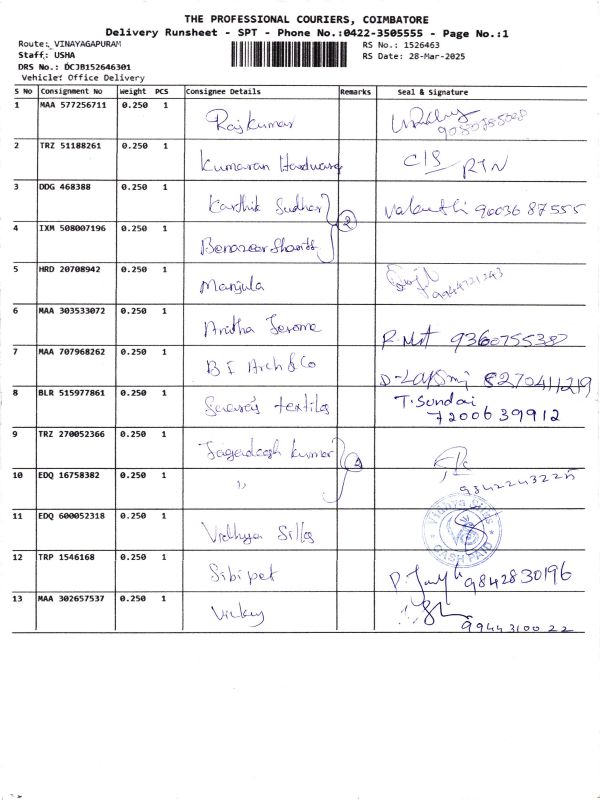 THE PROFESSIONAL COURIERS, COIMBATORE
Delivery Runsheet - SPT - Phone No.:0422-3505555 - Page No.:1
Route: VINAYAGAPURAM
Staff: USHA
DRS No.: DCJB152646301
Vehicle: Office Delivery
RS No.: 1526463
RS Date: 28-Mar-2025
S No Consignment No Weight PCS Consignee Details Remarks Seal & Signature
1 MAA 577256711 0.250 1 Rajkumar
2 TRZ 51188261 0.250 1 Kumaran Hardware C/S RTN
3 DDG 468388 0.250 1 Karthik Sudhar 2 Valanthi 9003687555
4 IXM 508007196 0.250 1
5 HRD 20708942 0.250 1 Manjula 9944721243
6 MAA 303533072 0.250 1 Anitha Jerome 9360755380
7 MAA 707968262 0.250 1 B I Arch & Co D-Laxmi 8270411219
8 BLR 515977861 0.250 1 textiles T.Sundai
7200639912
9 TRZ 270052366 0.250 1 Jagadeesh Kumar
10 EDQ 16758382 0.250 1 " 9342243225
11 EDQ 600052318 0.250 1 Vidhya Silks CASH PAID
12 TRP 1546168 0.250 1 Sibi pet 9842830196
13 MAA 302657537 0.250 1 Vickey
9944310022